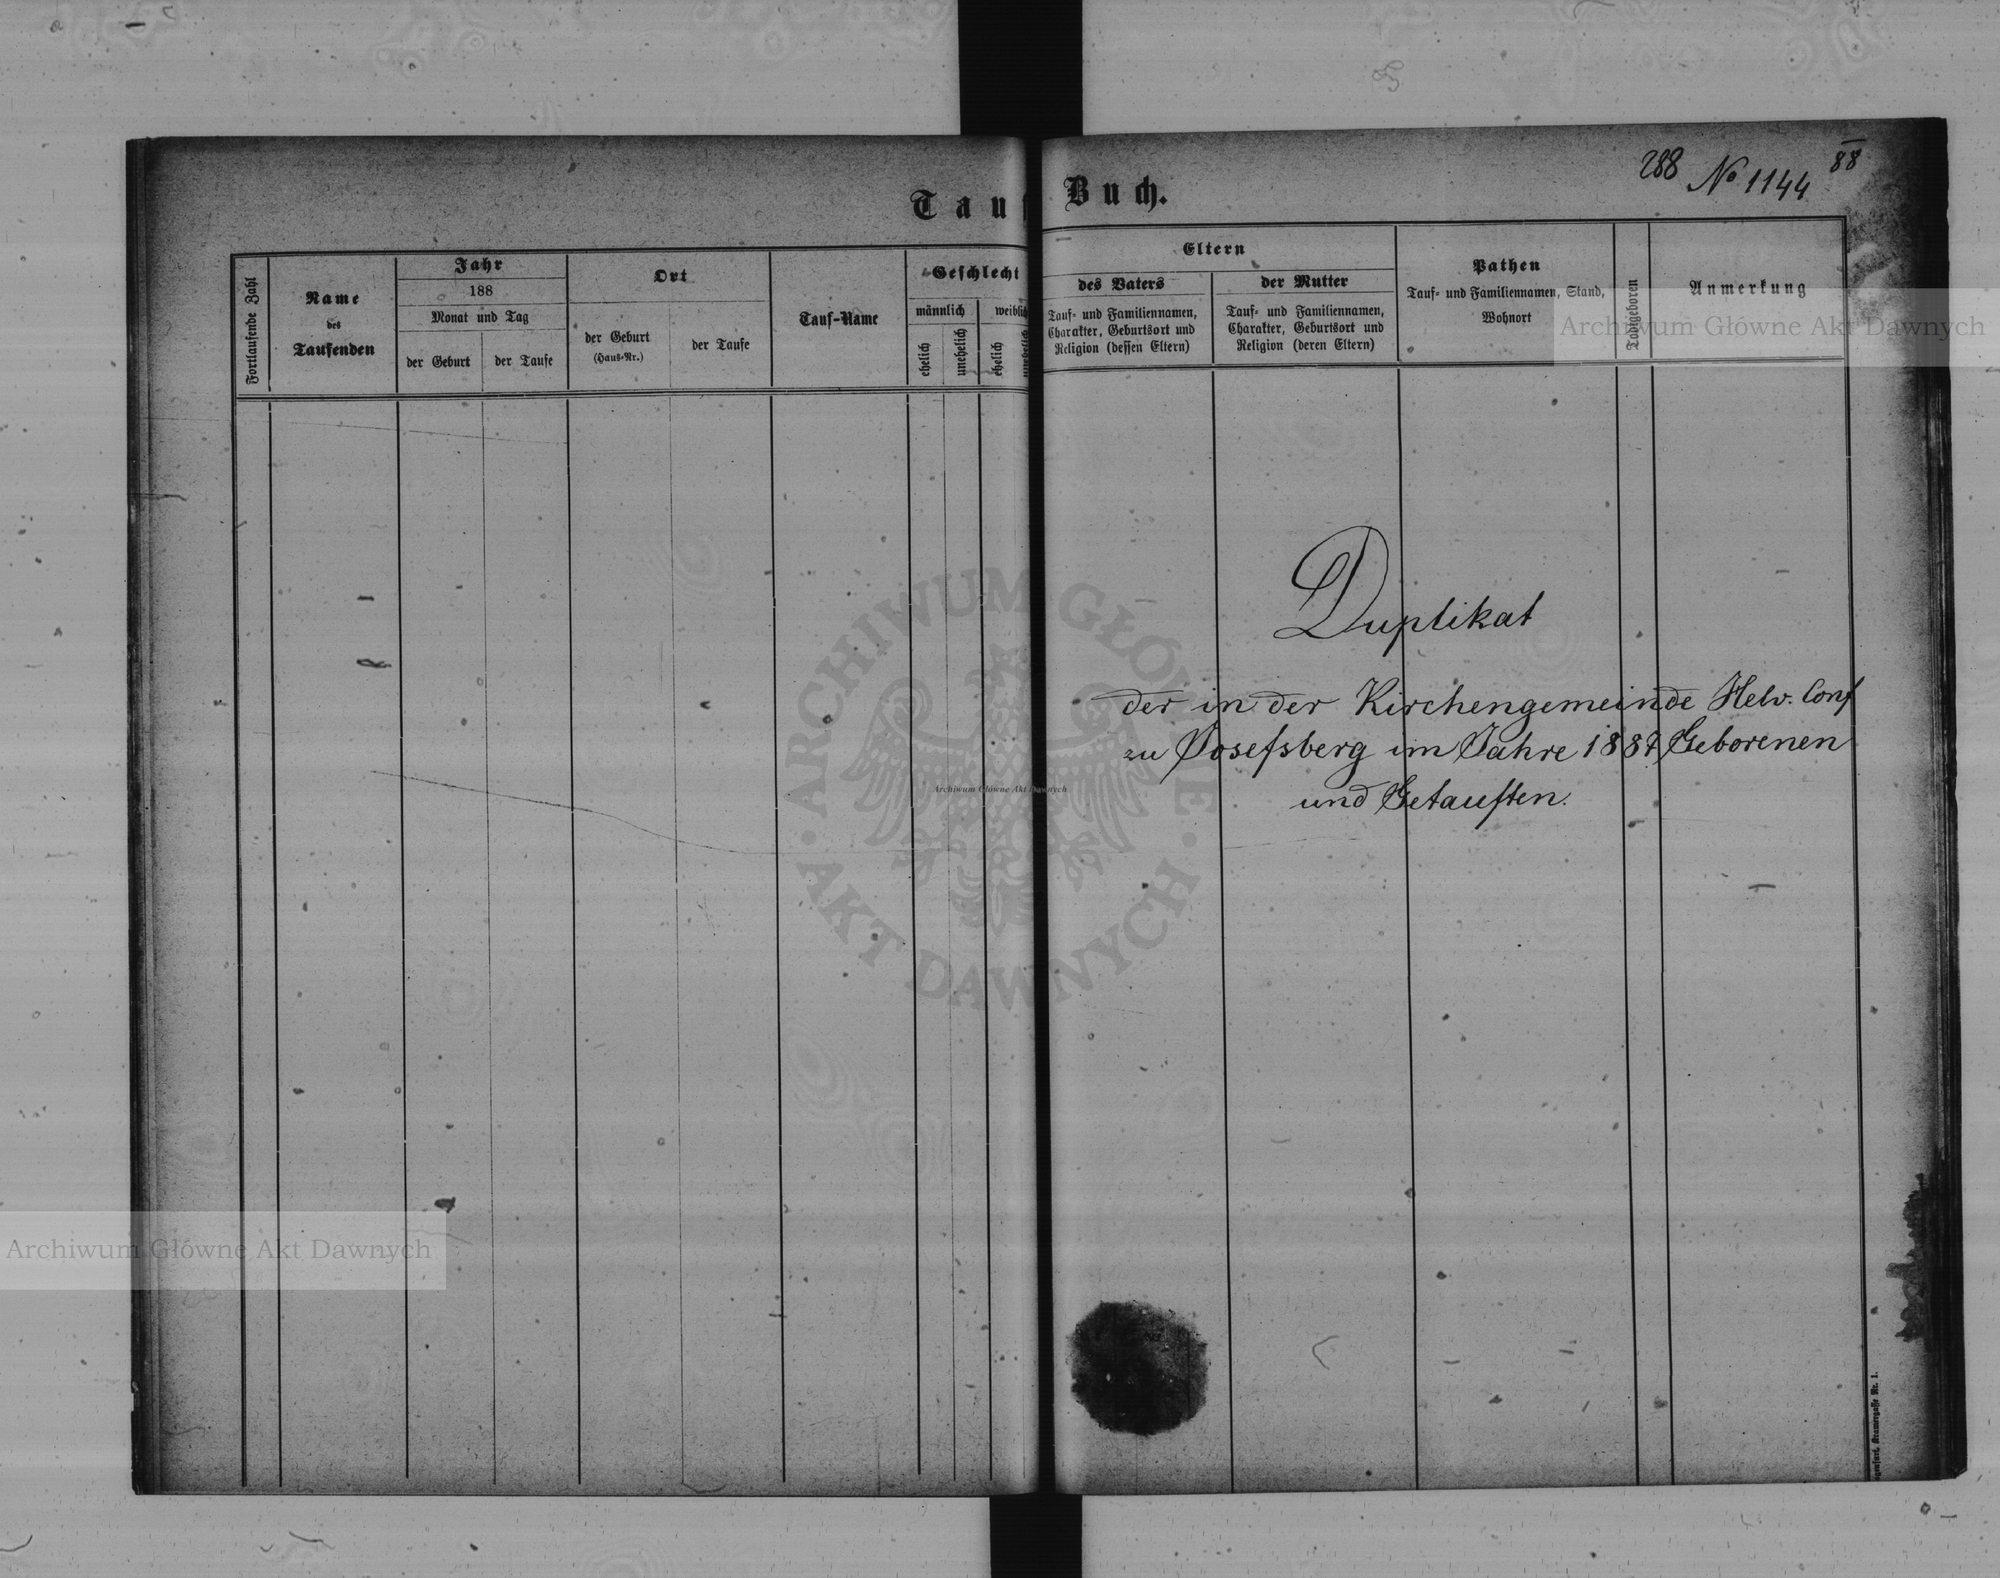 288 No 1144 88
Tauf Buch.
Fortlaufende Zahl
Name
des
Taufenden
Jahr
188
Monat und Tag
der Geburt
der Taufe
Ort
der Geburt
(Haus-Nr.)
der Taufe
Tauf-Name
Geschlecht
männlich
weiblich
ehelich
unehelich
ehelich
unehelich
Eltern
des Vaters
Tauf- und Familiennamen,
Charakter, Geburtsort und
Religion (dessen Eltern)
der Mutter
Tauf- und Familiennamen,
Charakter, Geburtsort und
Religion (deren Eltern)
Pathen
Tauf- und Familiennamen, Stand,
Wohnort
Todtgeboren
Anmerkung
Archiwum Główne Akt Dawnych
Duplikat
der in der Kirchengemeinde Helv. Conf
zu Josefsberg im Jahre 1887 Geborenen
und Getauften.
ARCHIWUM GŁÓWNE
AKT DAWNYCH
Archiwum Główne Akt Dawnych
Archiwum Główne Akt Dawnych
Nr. 1.